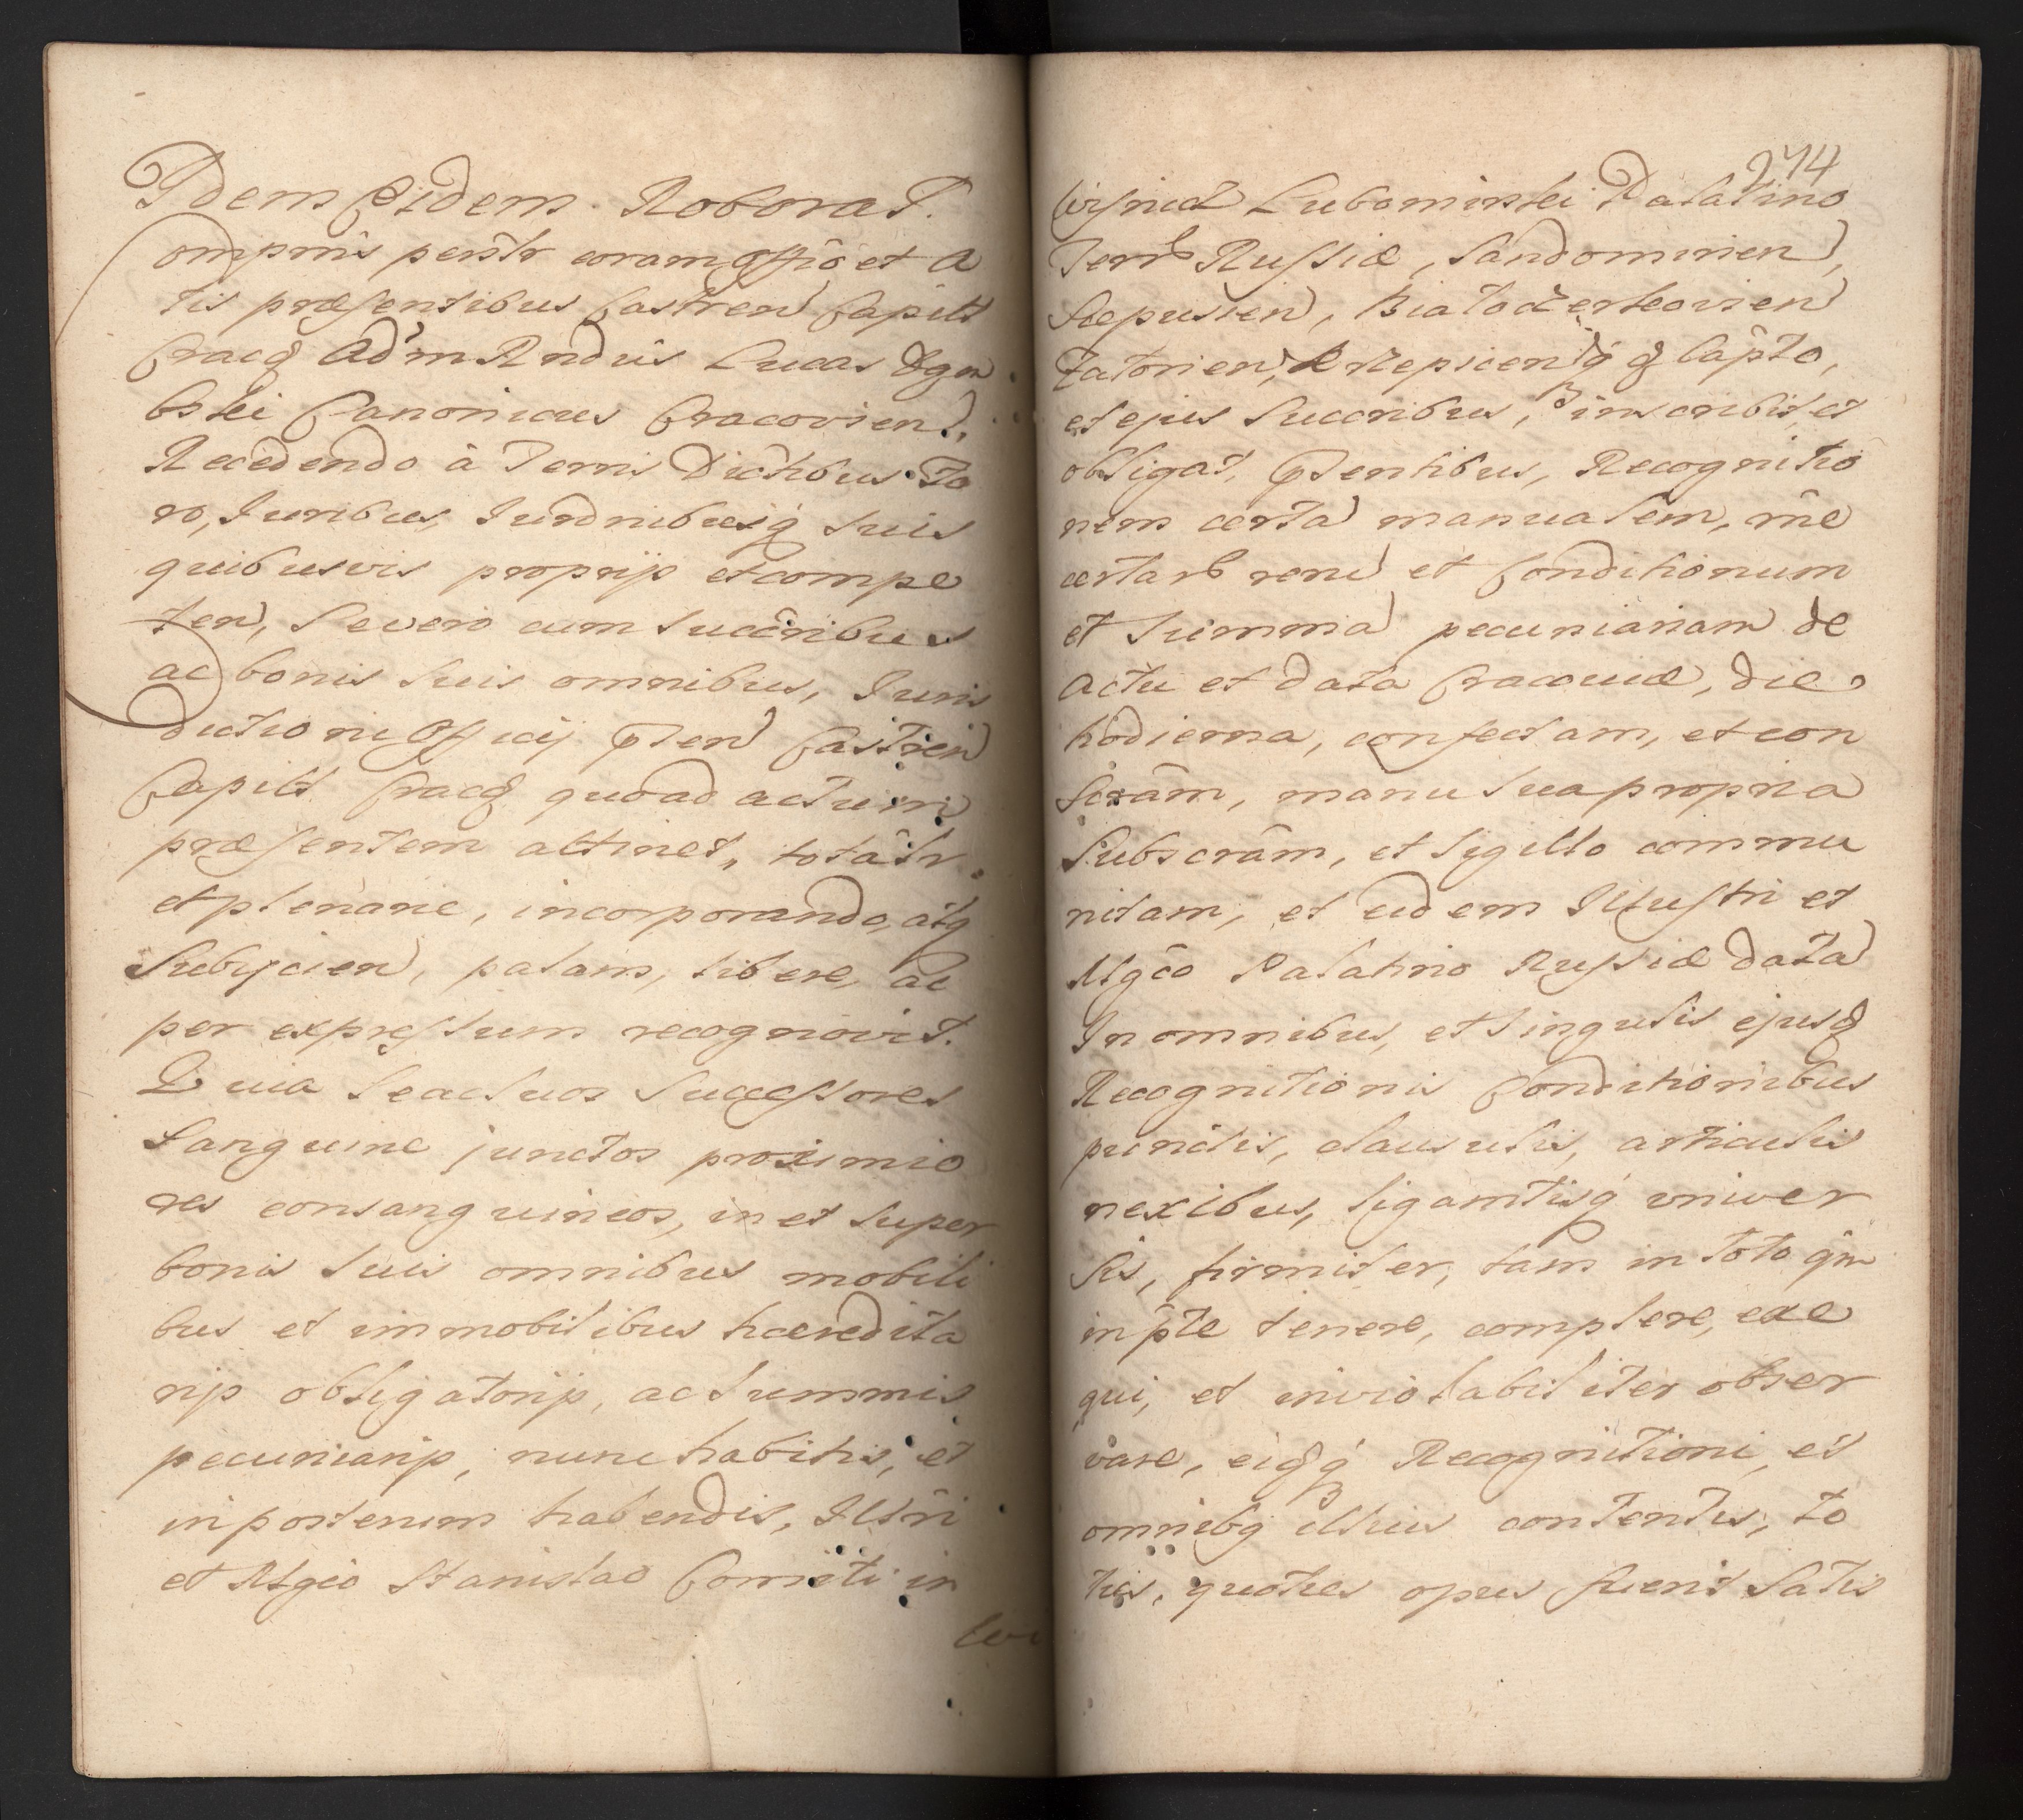 Idem Eidem Roborat.
Comprius persltr coram Offiō et A
ctis præsentibus Castren Capitl
Crac Adm Rndus Lucas
bski Canonicus Cracovien,
Recedendo à Terris Dictibus Fo
ro, Juribus, Jurdnibusq suis
quibusvis proprijs et compe
ten, Se vero cum Succribus
ac bonis suis omnibus, Juris
dictioni Officij pnten Castren
Capitl Crac quoad actum
præsentem attinet, totalr
et plenarie, incorporando, atq
Subijcien, palam, libere, ac
per expressum recognovit.
Quia Se ac suos Successores
Sanguine junctos proximio
res consanguineos, in et super
bonis suis omnibus mobili
bus et immobilibus hæredita
rijs obligatorijs, ac Summis
pecuniarijs, nunc habitis, et
in posterum habendis, Illri
et Mgco Stanislao Comiti in
Wi
274
Wisnicz Lubomirski Palatino
Terr Russiæ, Sandomirien,
Scepusien, Białocerkovien
Zatorien, Krzepicen q Capto,
et ejus Succribus, inscribit, et
obligat, pntentibus, Recognitio
nem certa manualem, rne
certar reru et Conditionum
et Summa pecuniariam de
Actu et data Cracoviæ, die
hodierna, confectam, et con
Scram, manu sua propria
Subscram, et sigillo commu
nitam, et eidem Illustri et
Mgco Palatino Russiæ data
In omnibus, et singulis ejusd
Recognitionis Conditionibus
punctis, clausulis, articulis
nexibus, ligamtisq univer
sis, firmiter, tam in toto qm
in pte tenere, complere, exe
qui, et inviolabiliter obser
vare, eidq Recognitioni, et
omnibq illius contentis, to
ties, quoties opus fuerit Satis